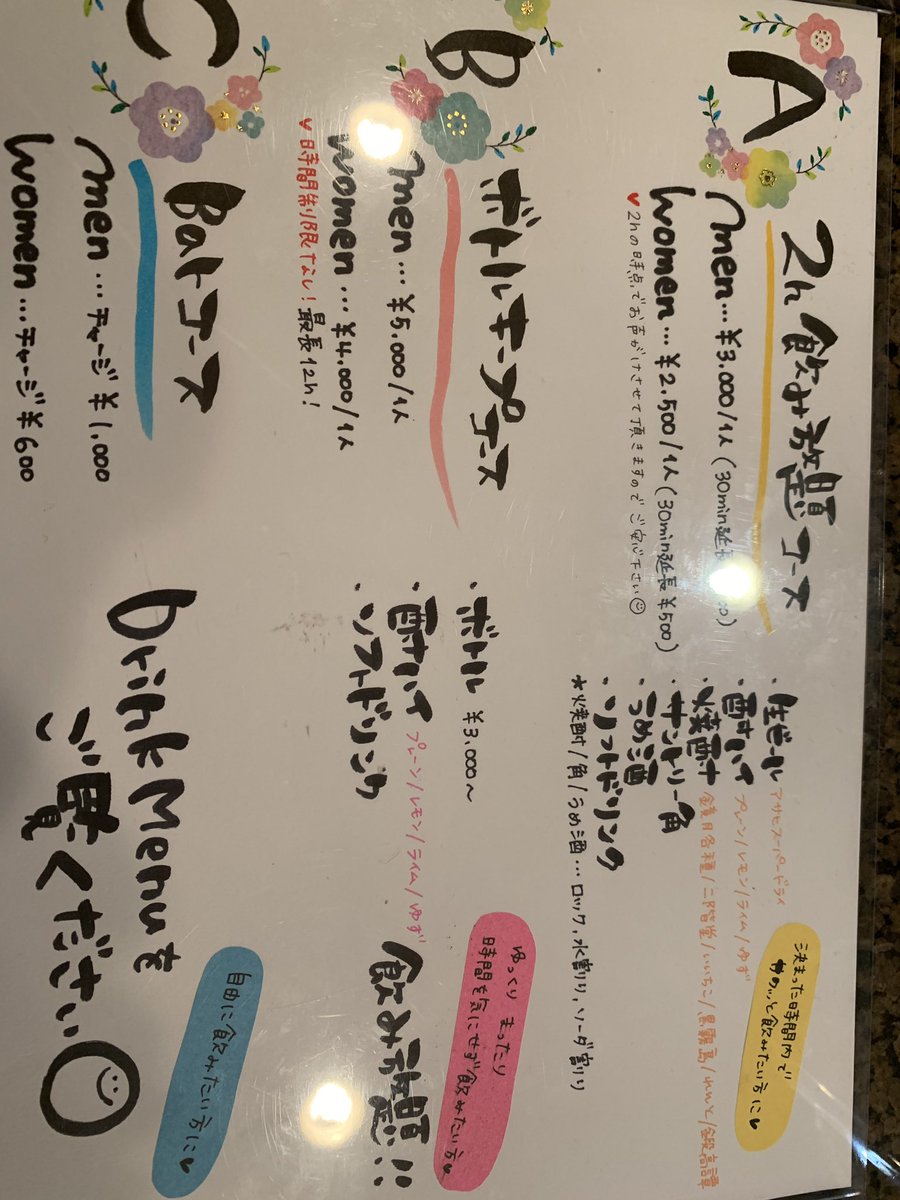 A
2h 飲み放題コース
men…￥3.000/1人 (30min延長
00)
women…￥2.500/1人 (30min延長￥500)
♥2hの時点でお声がけさせて頂きますのでご安心下さい☺
・生ビール アサヒスーパードライ
・酎ハイ プレーン/レモン/ライム/ゆず
・焼酎 鏡月各種/二階堂/いいちこ/黒霧島/れんと/鍛高譚
・サントリー角
・うめ酒
・ソフトドリンク
*焼酎/角/うめ酒…ロック、水割り、ソーダ割り
決まった時間内で
サクッと飲みたい方に♥
B
ボトルキープコース
men…￥5.000/1人
women…￥4.000/1人
♥時間制限なし!最長12h!
・ボトル ￥3.000〜
・酎ハイ プレーン/レモン/ライム/ゆず
・ソフトドリンク
飲み放題!!
ゆっくり まったり
時間を気にせず飲みたい方♥
C
Barコース
men…チャージ￥1.000
women…チャージ￥600
Drink Menuを
ご覧ください☺
自由に飲みたい方に♥